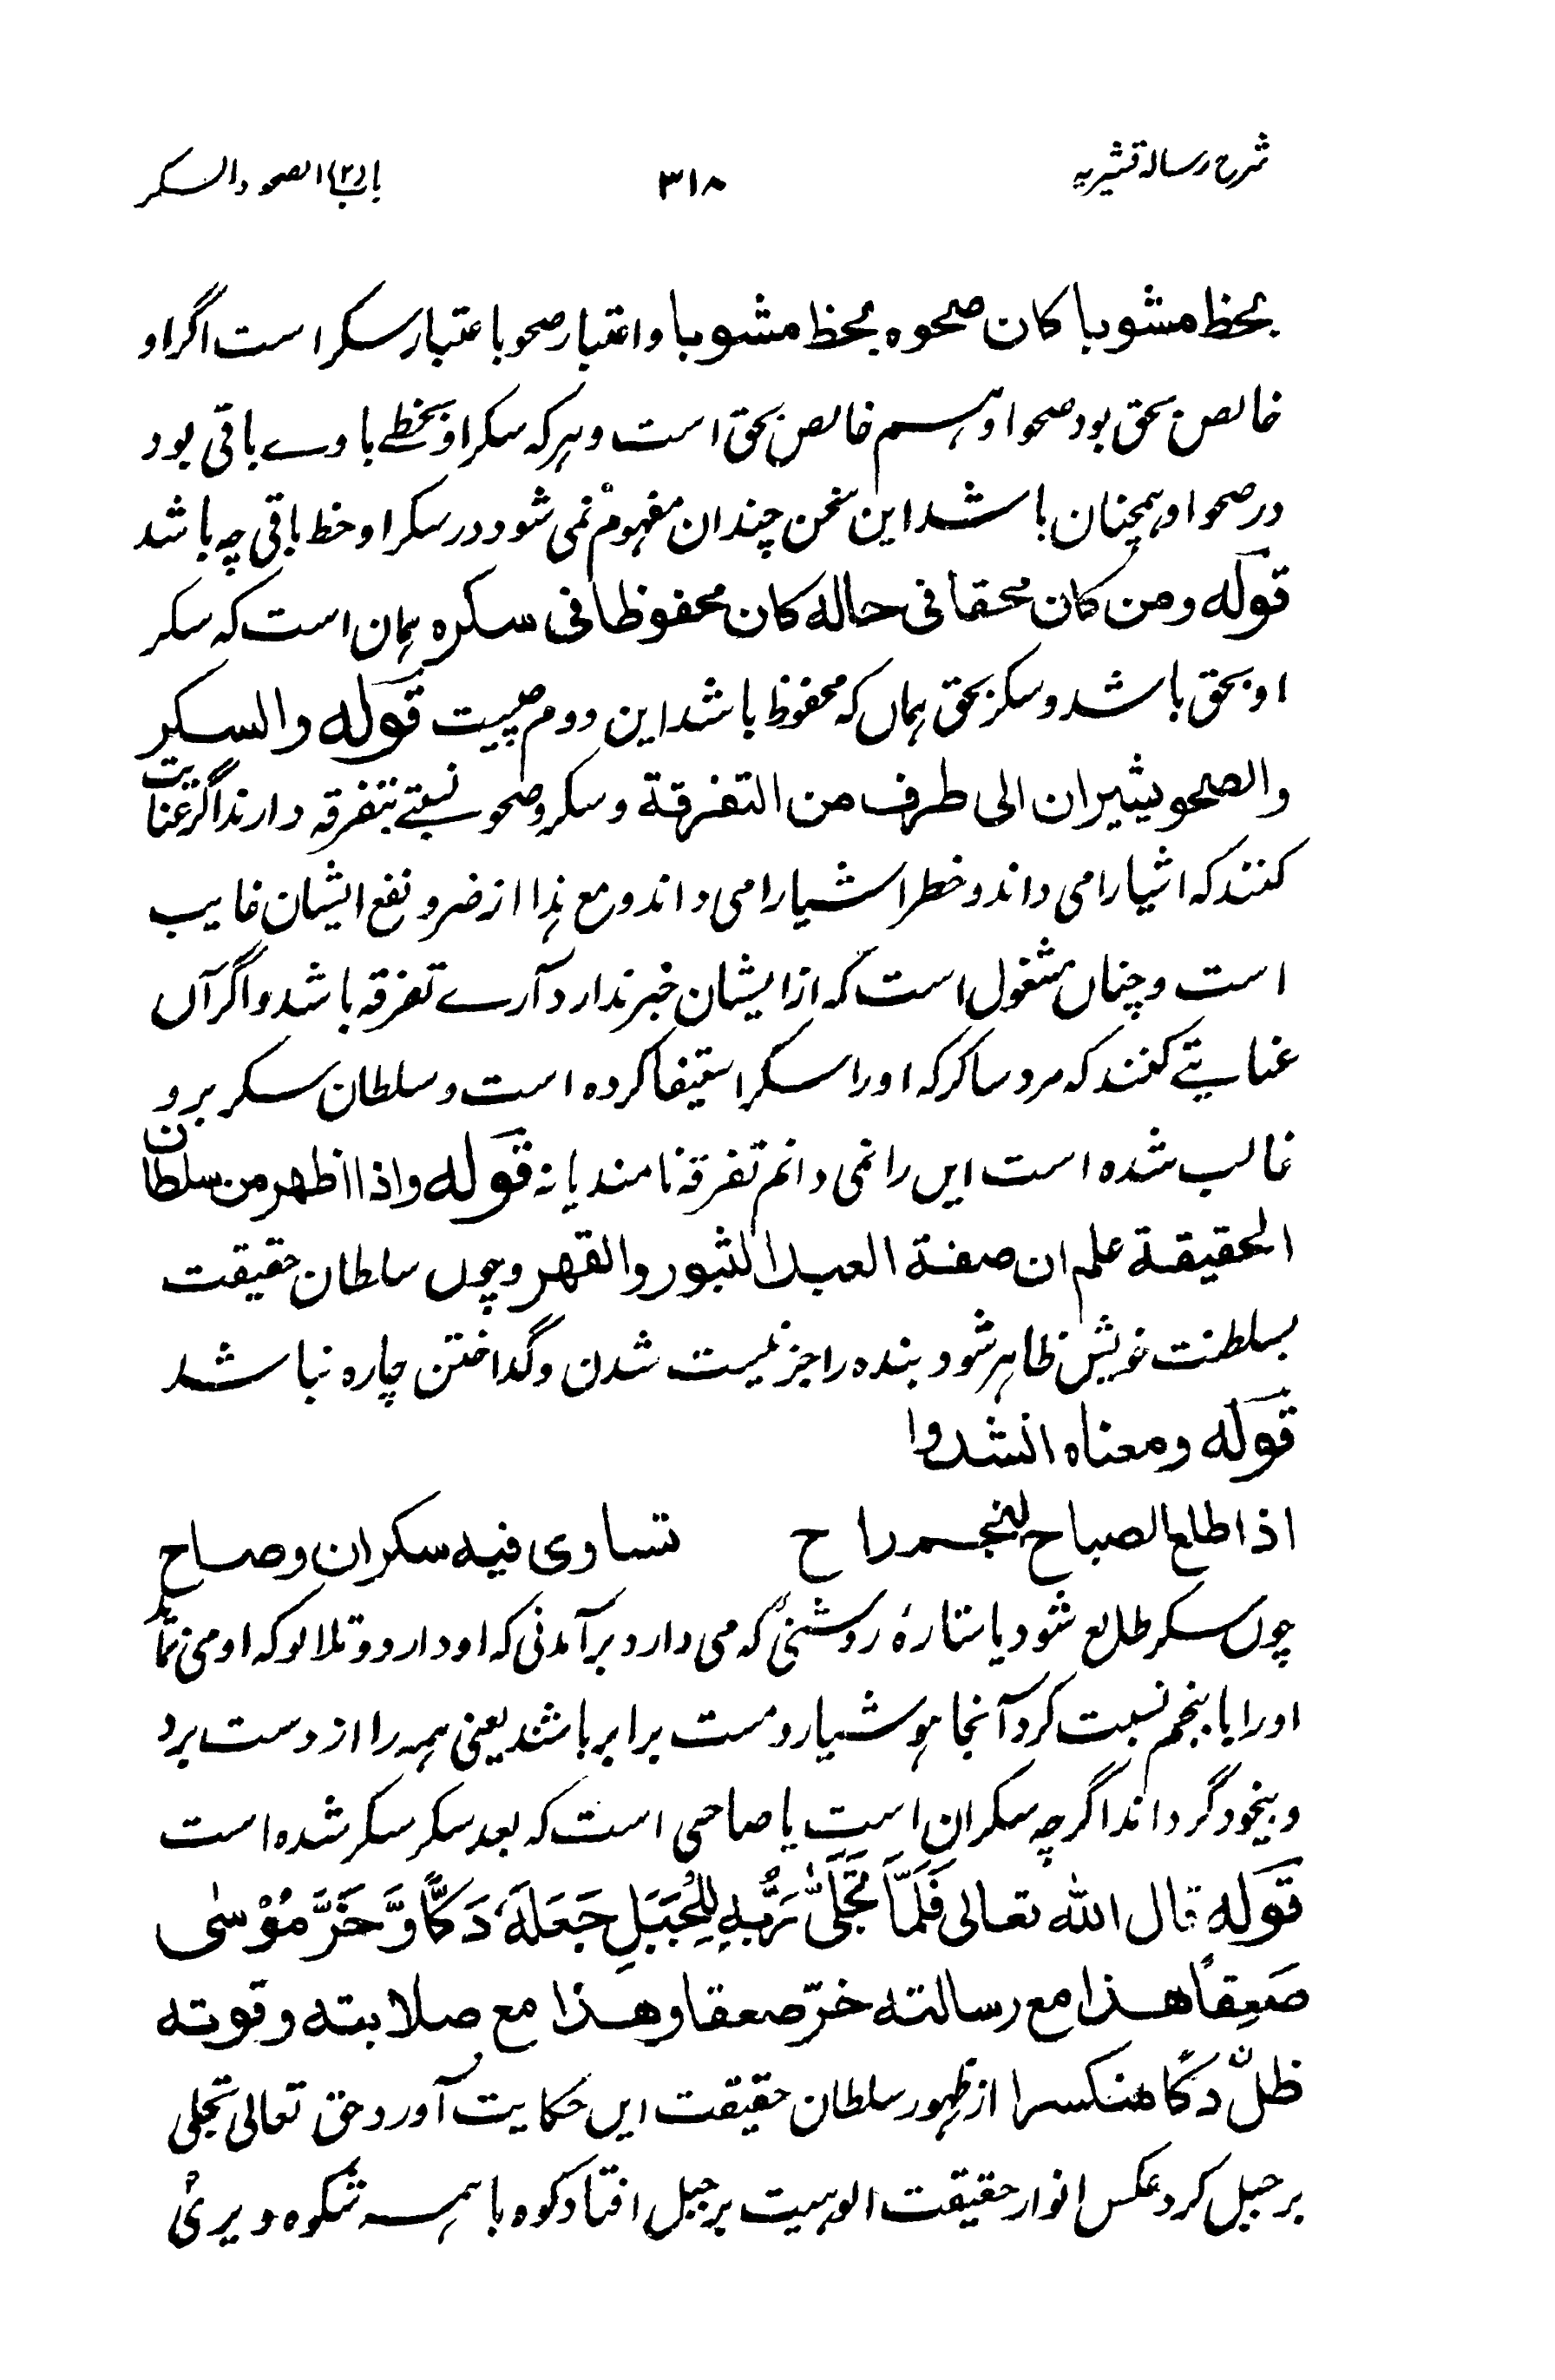 شرح رسالہ قشیریہ
۳۱۸
باب (۲) الصحو والسکر
بحظ مشوبا کان صحوہ بحظ مشوبا و اعتبار صحو باعتبار سکر است اگر او
خالص بحق بود صحو او ہم خالص بحق است و ہر کہ سکر او بخطے با وے باقی بود
در صحو او ہمچنان باشد این سخن چندان مفہوم نمی شود در سکر او خط باقی چہ باشد
قولہ ومن کان محقا فی حالہ کان محفوظا فی سکرہ ہمان است کہ سکر
او بحق باشد و سکر بحق ہماں کہ محفوظ باشد این دوم چیست قولہ والسکر
والصحو یشیران الی طرف من التفرقة و سکر و صحو نسبتے بتفرقہ دارند اگر عنایت
کنند کہ اشیا را می داند و خطر اشیا را می داند و مع ہذا از ضر و نفع ایشان غایب
است و چناں مشغول است کہ از ایشان خبر ندارد آرے تفرقہ باشد و اگر آں
عنایتے کنند کہ مرد ساکر کہ او را سکر استیفا کردہ است و سلطان سکر برو
غالب شدہ است ایں را نمی دانم تفرقہ نامند یا نہ قولہ واذا اظہر من سلطان
الحقیقة علم ان صفة العبد الثبور والقهر و چوں سلطان حقیقت
بسلطنت خویش ظاہر شود بندہ را جز نیست شدن و گداختن چارہ نباشد
قولہ ومعناہ انشدوا
اذا طلع الصباح لنجم راح تساوی فیہ سکران وصاح
چوں سکر طالع شود یا ستارۂ روشنی کہ می دارد برآمدنی کہ او دارد و تلالو کہ او می نماید
او را با نجم نسبت کرد آنجا ہوشیار و مست برابر باشد یعنی ہمہ را از دست برد
و بیخود گرداند اگرچہ سکران است یا صاحی است کہ بعد سکر سکر شدہ است
قولہ قال اللہ تعالی فَلَمَّا تَجَلَّى رَبُّہٗ لِلْجَبَلِ جَعَلَهٗ دَكًّا وَّ خَرَّ مُوْسٰى
صَعِقًا ھذا مع رسالتہ خرّ صعقا وھذا مع صلابتہ وقوتہ
ظلّ دکّا منکسرا از ظہور سلطان حقیقت ایں حکایت آورد حق تعالی تجلی
بر جبل کرد عکس انوار حقیقت الوہیت بر جبل افتاد کوہ با ہمہ شکوہ و پرئ